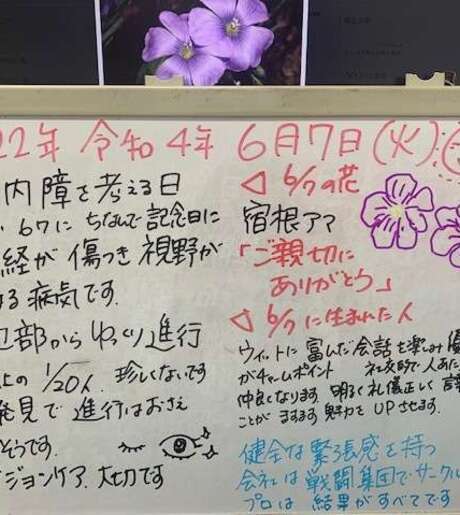 22年 令和4年 6月7日(火):
内障を考える日
6/7に ちなんで記念日に
経が傷つき視野が
る病気です.
辺部からゆっくり進行
上の 1/20人. 珍しくないです
発見で進行はおさえ
そうです.
ジョンケア.大切です
◁ 6/7の花
宿根アマ
「ご親切に
ありがとう」
◁ 6/7に生まれた人
ウィットに富んだ会話を楽しみ 優
がチャームポイント 社交的で人あた
仲良くなります. 明るく礼儀正しく 言
ことが ますます 魅力を UPさせます.
健全な緊張感を持つ
会社は 戦闘集団で サークル
プロは 結果がすべてです